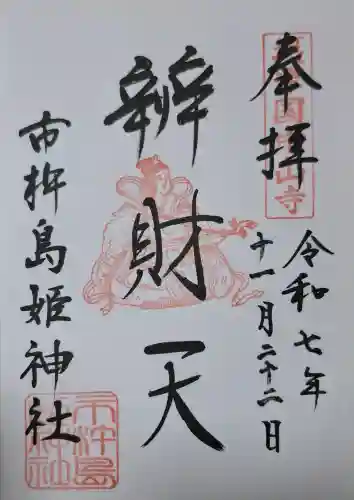 奉拝
令和七年
十一月二十二日
辨財天
市杵島姫神社